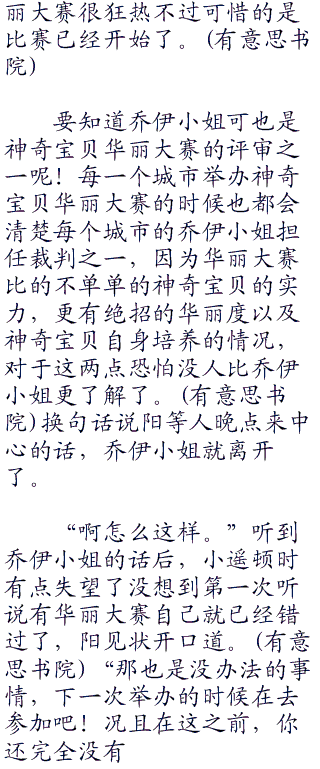 丽大赛很狂热不过可惜的是
比赛已经开始了。(有意思书
院)
要知道乔伊小姐可也是
神奇宝贝华丽大赛的评审之
一呢！每一个城市举办神奇
宝贝华丽大赛的时候也都会
清楚每个城市的乔伊小姐担
任裁判之一，因为华丽大赛
比的不单单的神奇宝贝的实
力，更有绝招的华丽度以及
神奇宝贝自身培养的情况，
对于这两点恐怕没人比乔伊
小姐更了解了。(有意思书
院)换句话说阳等人晚点来中
心的话，乔伊小姐就离开
了。
“啊怎么这样。”听到
乔伊小姐的话后，小遥顿时
有点失望了没想到第一次听
说有华丽大赛自己就已经错
过了，阳见状开口道。(有意
思书院)“那也是没办法的事
情，下一次举办的时候在去
参加吧！况且在这之前，你
还完全没有